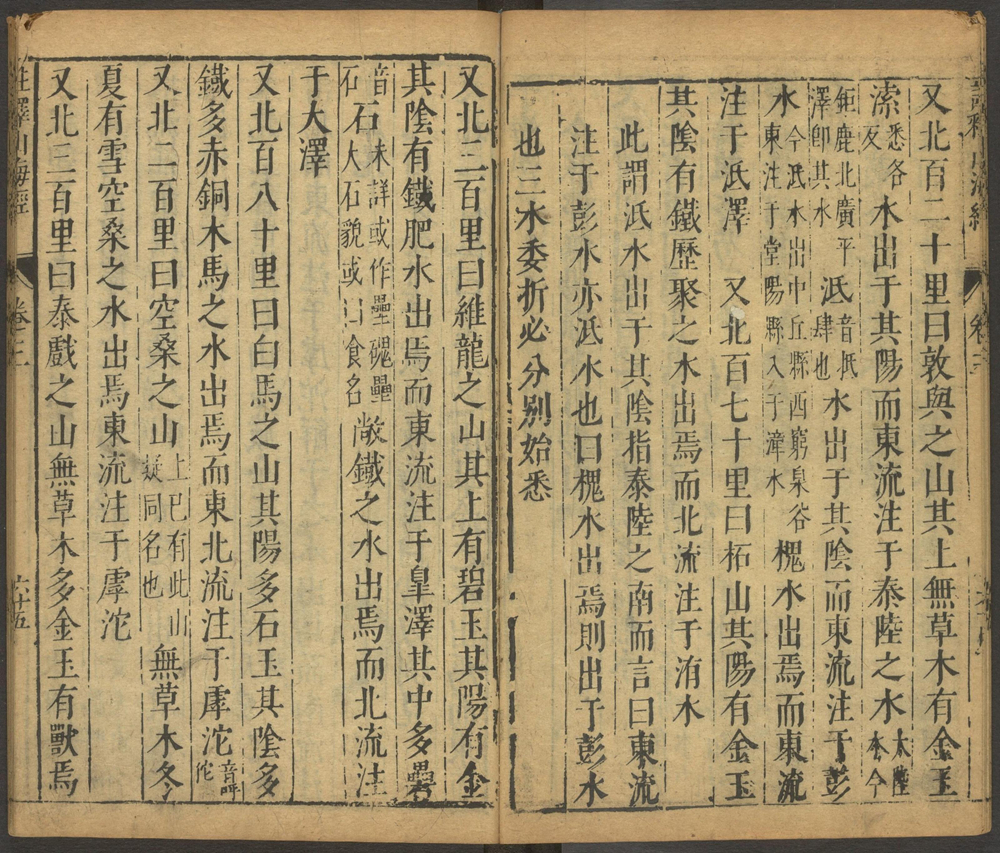 又北百二十里曰敦與之山其上無草木有金玉
索悉各反水出于其陽而東流注于泰陸之水大陸水今
鉅鹿北廣平澤卽其水泜音抵肆也水出于其陰而東流注于彭
水今泜水出中丘縣西窮泉谷東注于堂陽縣入于漳水槐水出焉而東流
注于泜澤 又北百七十里曰柘山其陽有金玉
其陰有鐵歷聚之水出焉而北流注于洧水
此謂泜水出于其陰指泰陸之南而言曰東流
注于彭水亦泜水也曰槐水出焉則出于彭水
也三水委折必分別始悉
又北三百里曰維龍之山其上有碧玉其陽有金
其陰有鐵肥水出焉而東流注于臯澤其中多礨
音未詳或作壘磈壘石大石貌或曰食名石敞鐵之水出焉而北流注
于大澤
又北百八十里曰白馬之山其陽多石玉其陰多
鐵多赤銅木馬之水出焉而東北流注于虖沱音呼佗
又北二百里曰空桑之山上已有此山疑同名也無草木冬
夏有雪空桑之水出焉東流注于虖沱
又北三百里曰泰戲之山無草木多金玉有獸焉
山海經
卷三
六十五